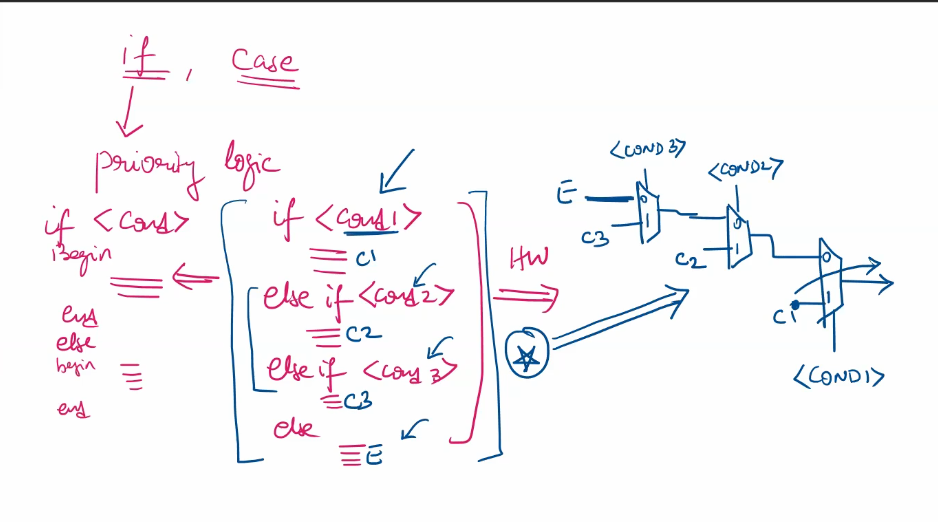 if, Case
priority logic
if <Cond>
Begin
end
else
begin
end
if <Cond1>
C1
else if <Cond2>
C2
else if <Cond 3>
C3
else
E
HW
<COND 3>
E
0
C3
1
<COND2>
0
C2
1
0
C1
1
<COND1>